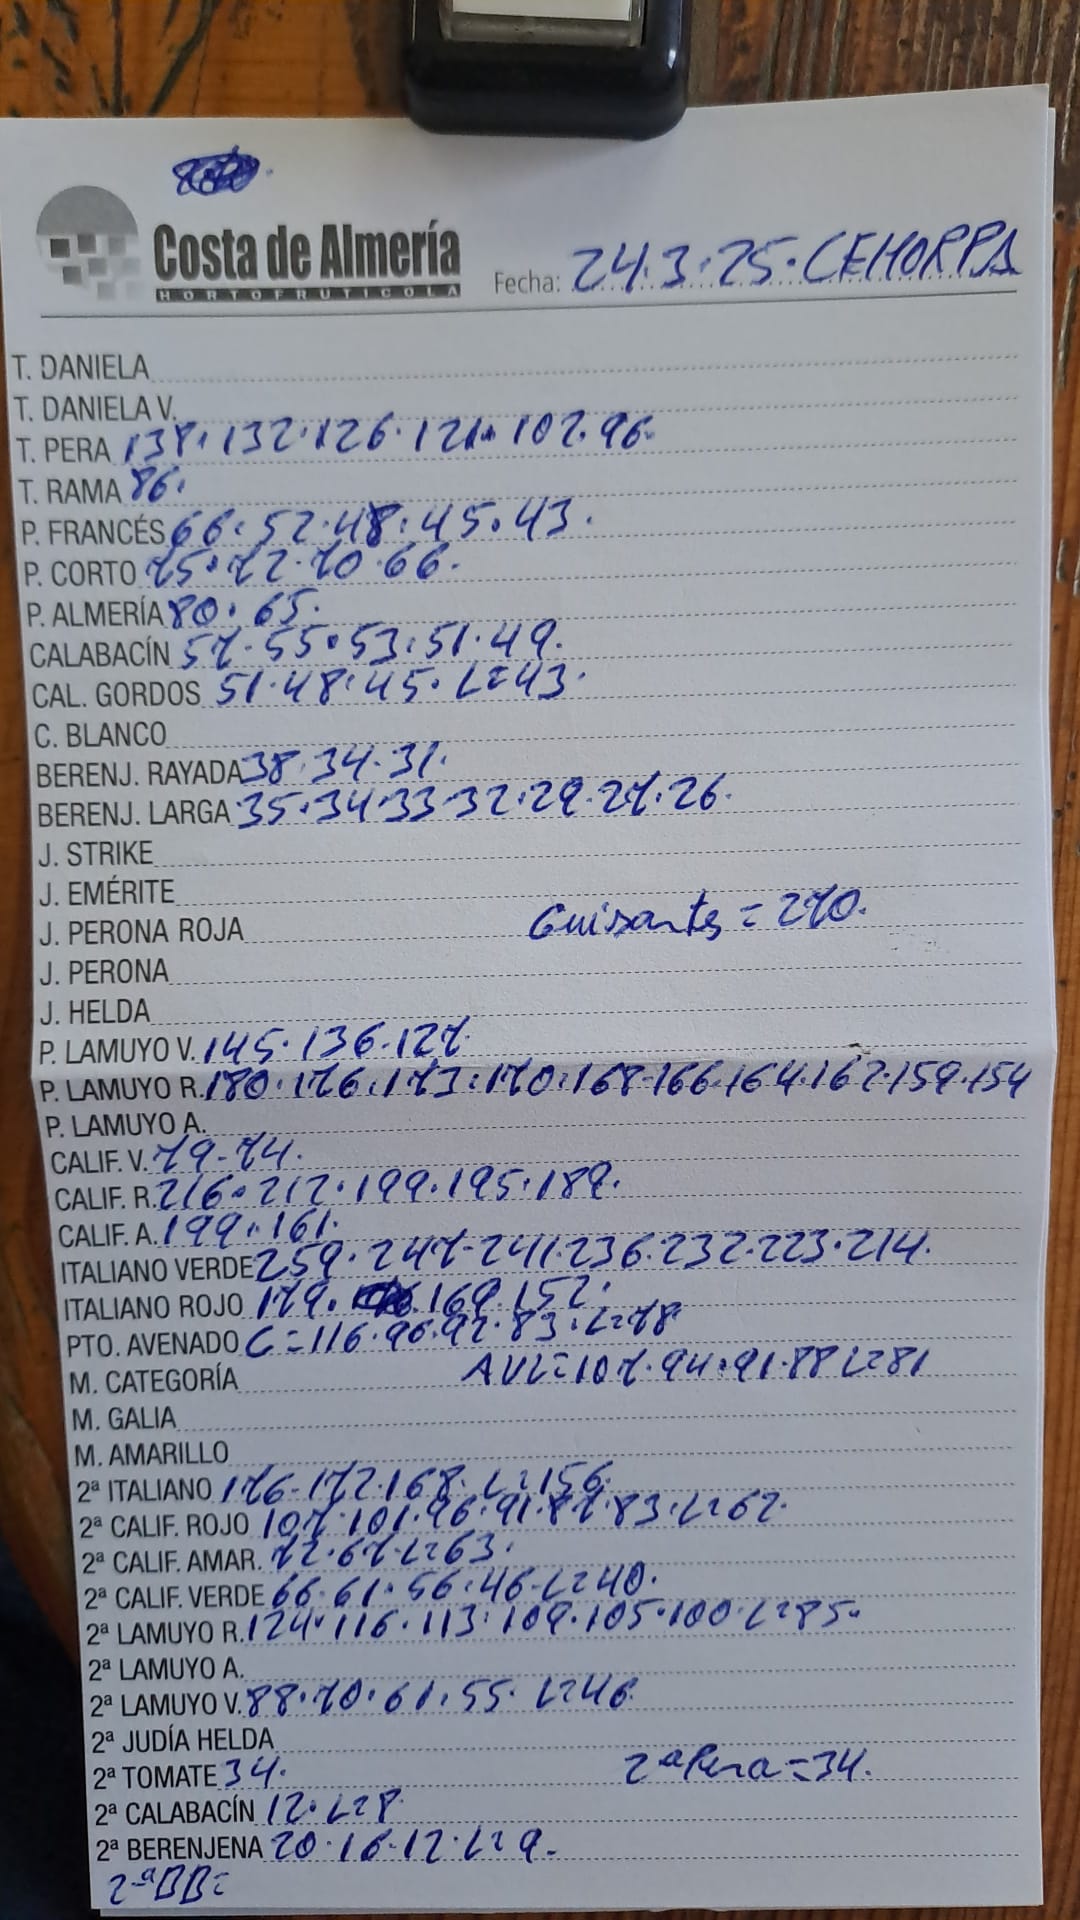 Costa de Almería
HORTOFRUTICOLA
Fecha: 24.3.25.CEHORPA
T. DANIELA
T. DANIELA V.
T. PERA 138.132.126.121.102.96.
T. RAMA 86.
P. FRANCÉS 66.52.48.45.43.
P. CORTO 75.72.70.66.
P. ALMERÍA 80.65.
CALABACÍN 57.55.53.51.49.
CAL. GORDOS 51.48.45.L=43.
C. BLANCO
BERENJ. RAYADA 38.34.31.
BERENJ. LARGA 35.34.33.32.29.27.26.
J. STRIKE
J. EMÉRITE
J. PERONA ROJA Guisantes = 270.
J. PERONA
J. HELDA
P. LAMUYO V. 145.136.127.
P. LAMUYO R. 180.176.173.170.168.166.164.162.159.154
P. LAMUYO A.
CALIF. V. 79-74.
CALIF. R. 216.212.199.195.189.
CALIF. A. 199.161.
ITALIANO VERDE 259.247-241.236.232.223.214.
ITALIANO ROJO 179. 169.152.
PTO. AVENADO C=116.96.92.83.L=78
M. CATEGORÍA AVL=107.94.91.88 L=81
M. GALIA
M. AMARILLO
2ª ITALIANO 176-172.168.L=156.
2ª CALIF. ROJO 107.101.96.91.87.83.L=62.
2ª CALIF. AMAR. 72.67-L=63.
2ª CALIF. VERDE 66.61.56.46-L=40.
2ª LAMUYO R. 124.116.113.109.105.100.L=85.
2ª LAMUYO A.
2ª LAMUYO V. 88.70.61.55.L=46.
2ª JUDÍA HELDA
2ª TOMATE 34. 2ª Pera=34.
2ª CALABACÍN 12.L=8
2ª BERENJENA 20.16.12.L=9.
2ªBB=